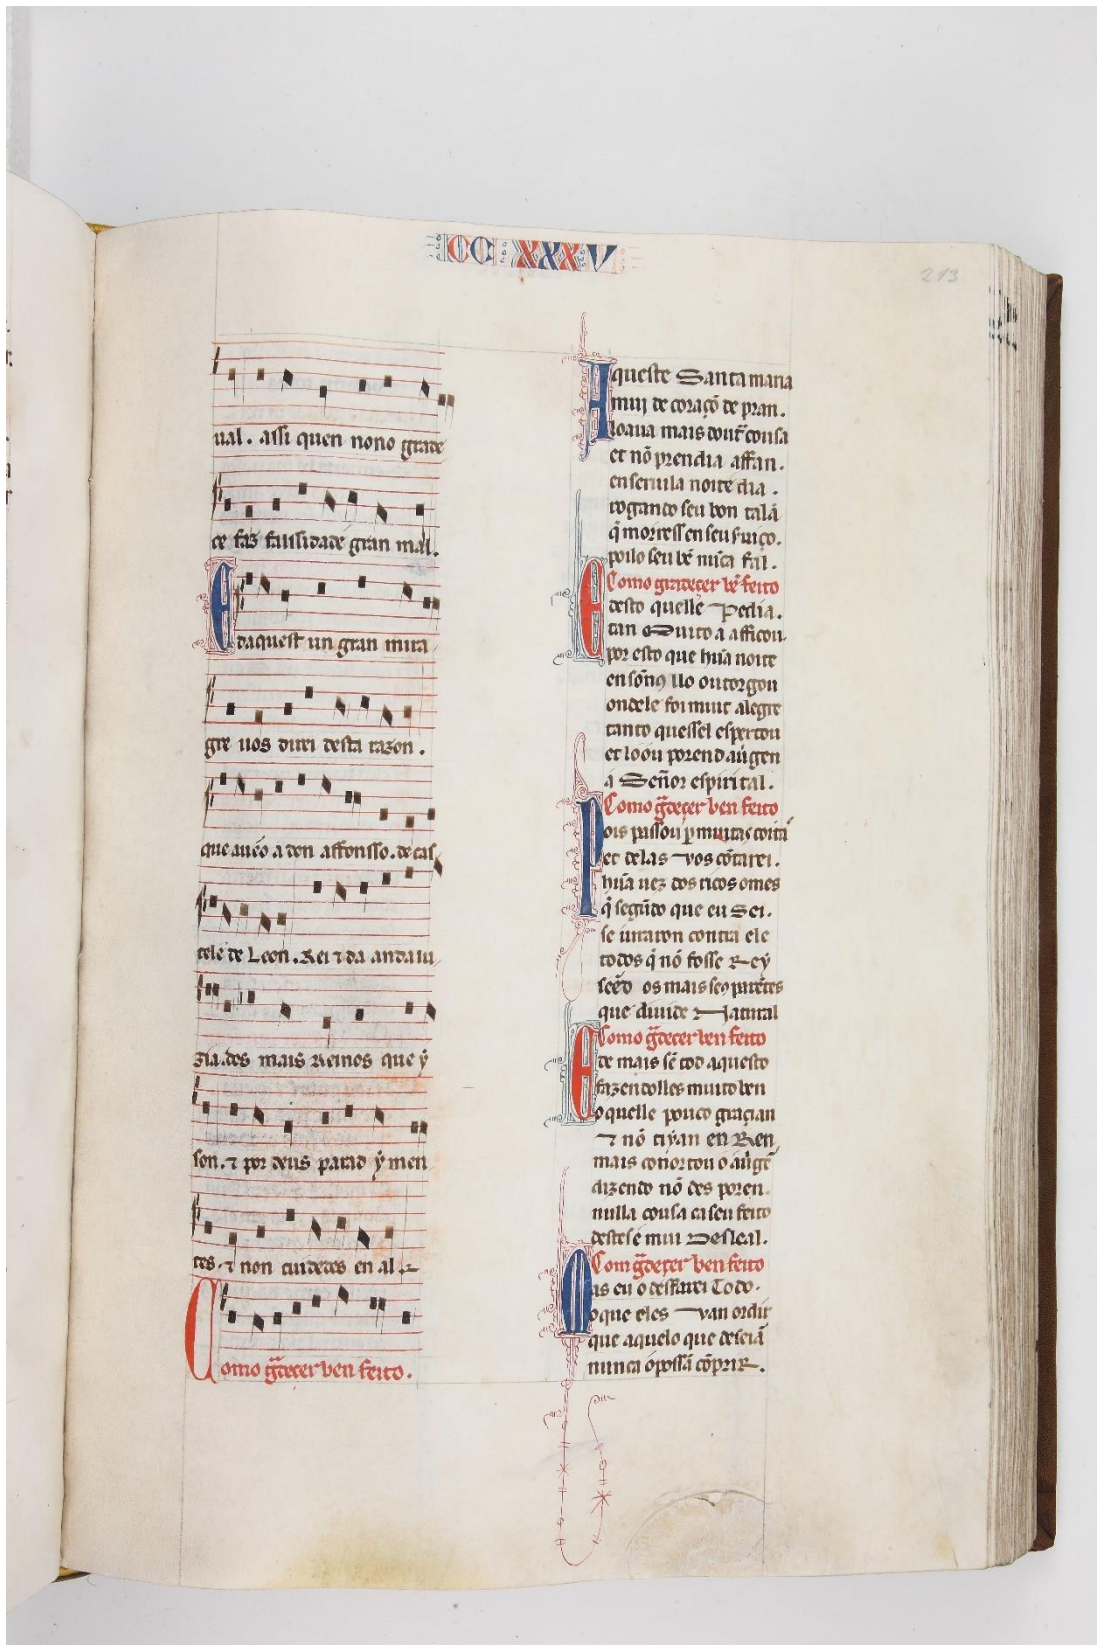 CC XXX V
213
ual. assi quen nono grade
ce faz falssidade gran mal.
E daquest un gran mira
gre uos direi desta razon.
que aueo a don affonsso. de cas
tela de Leon. Rei ⁊ da andalu
zia. dos mais reinos que ý
son. ⁊ por deus parad ý men
tes. ⁊ non cuidedes en al.
Como gradecer ben feito.
A queste Santa maria
mui de coraçõ de pran.
loaua mais dout cousa
et nõ prendia affan.
en seruila noite dia.
rogando seu bon talã
q̃ moiress en seu seruiço.
poilo seu bẽ nũca fal.
Como gradecer bẽ feito
E desto quelle Pedia.
tan Muito a afficou.
por esto que hũa noite
en sõnos llo outorgou
ondele foi muit alegre
tanto quessel espertou
et loou porend a uirgen
a Señor espirital.
Como gradecer ben feito
Pois passou per muitas coitas
et delas Vos cõtarei.
hũa uez dos ricos omes
q̃ segũdo que eu Sei.
se iuraron contra ele
todos q̃ nõ fosse Rey
seẽd os mais seus parẽtes
que diuide Natural
Como gradecer ben feito
E de mais sẽ tod aquesto
fazendolles muito ben
o quelle pouco graçian
⁊ nõ tiýan en Ren,
mais conortou o a uirgẽ
dizendo nõ des poren.
nulla cousa ca seu feito
destes é mui Desleal.
Com gradecer ben feito
Mas eu o desfarei Todo.
o que eles Van ordir
que aquelo que deseiã
nunca o possã cõprir.